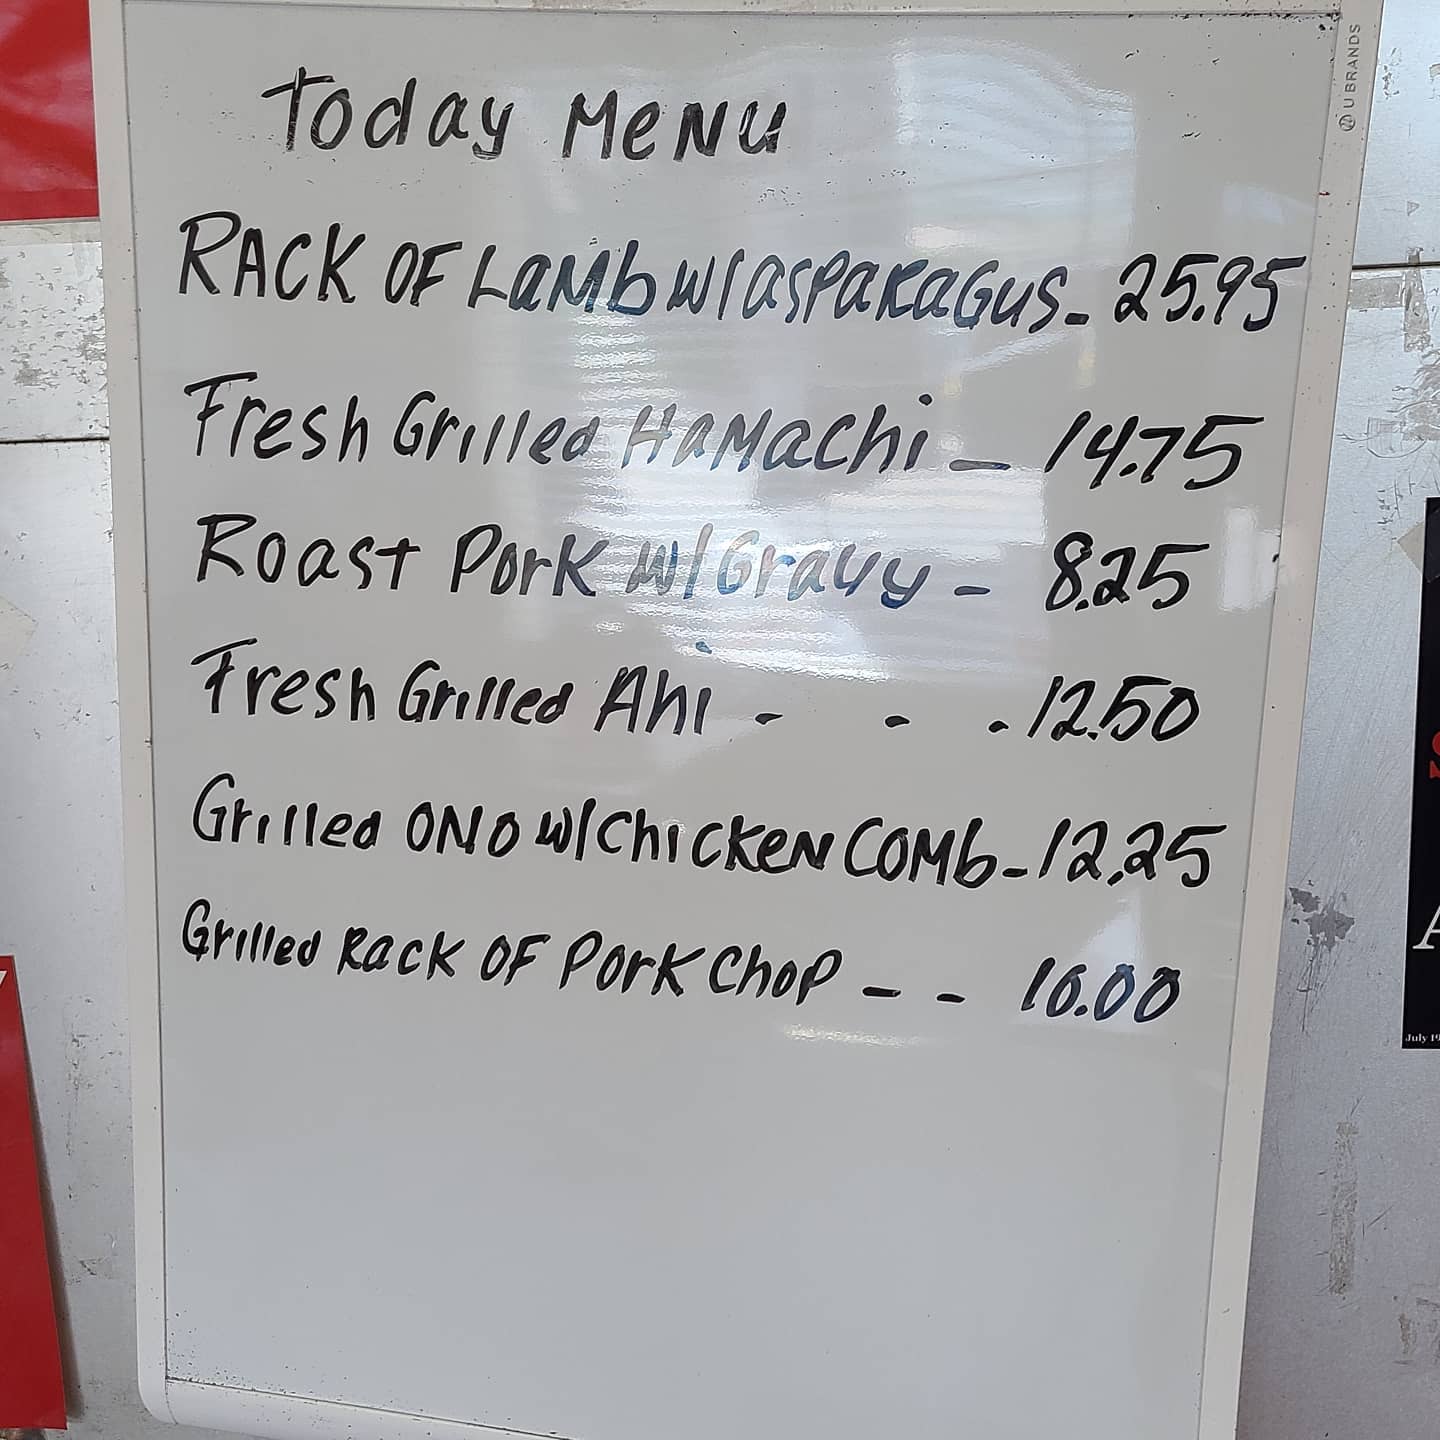 Today Menu
RACK OF Lamb w/asparagus - 25.95
Fresh Grilled Hamachi - 14.75
Roast Pork w/Gravy - 8.25
Fresh Grilled Ahi - - - 12.50
Grilled ONO w/Chicken Comb - 12.25
Grilled Rack OF Pork Chop - - 10.00
U BRANDS
July 19